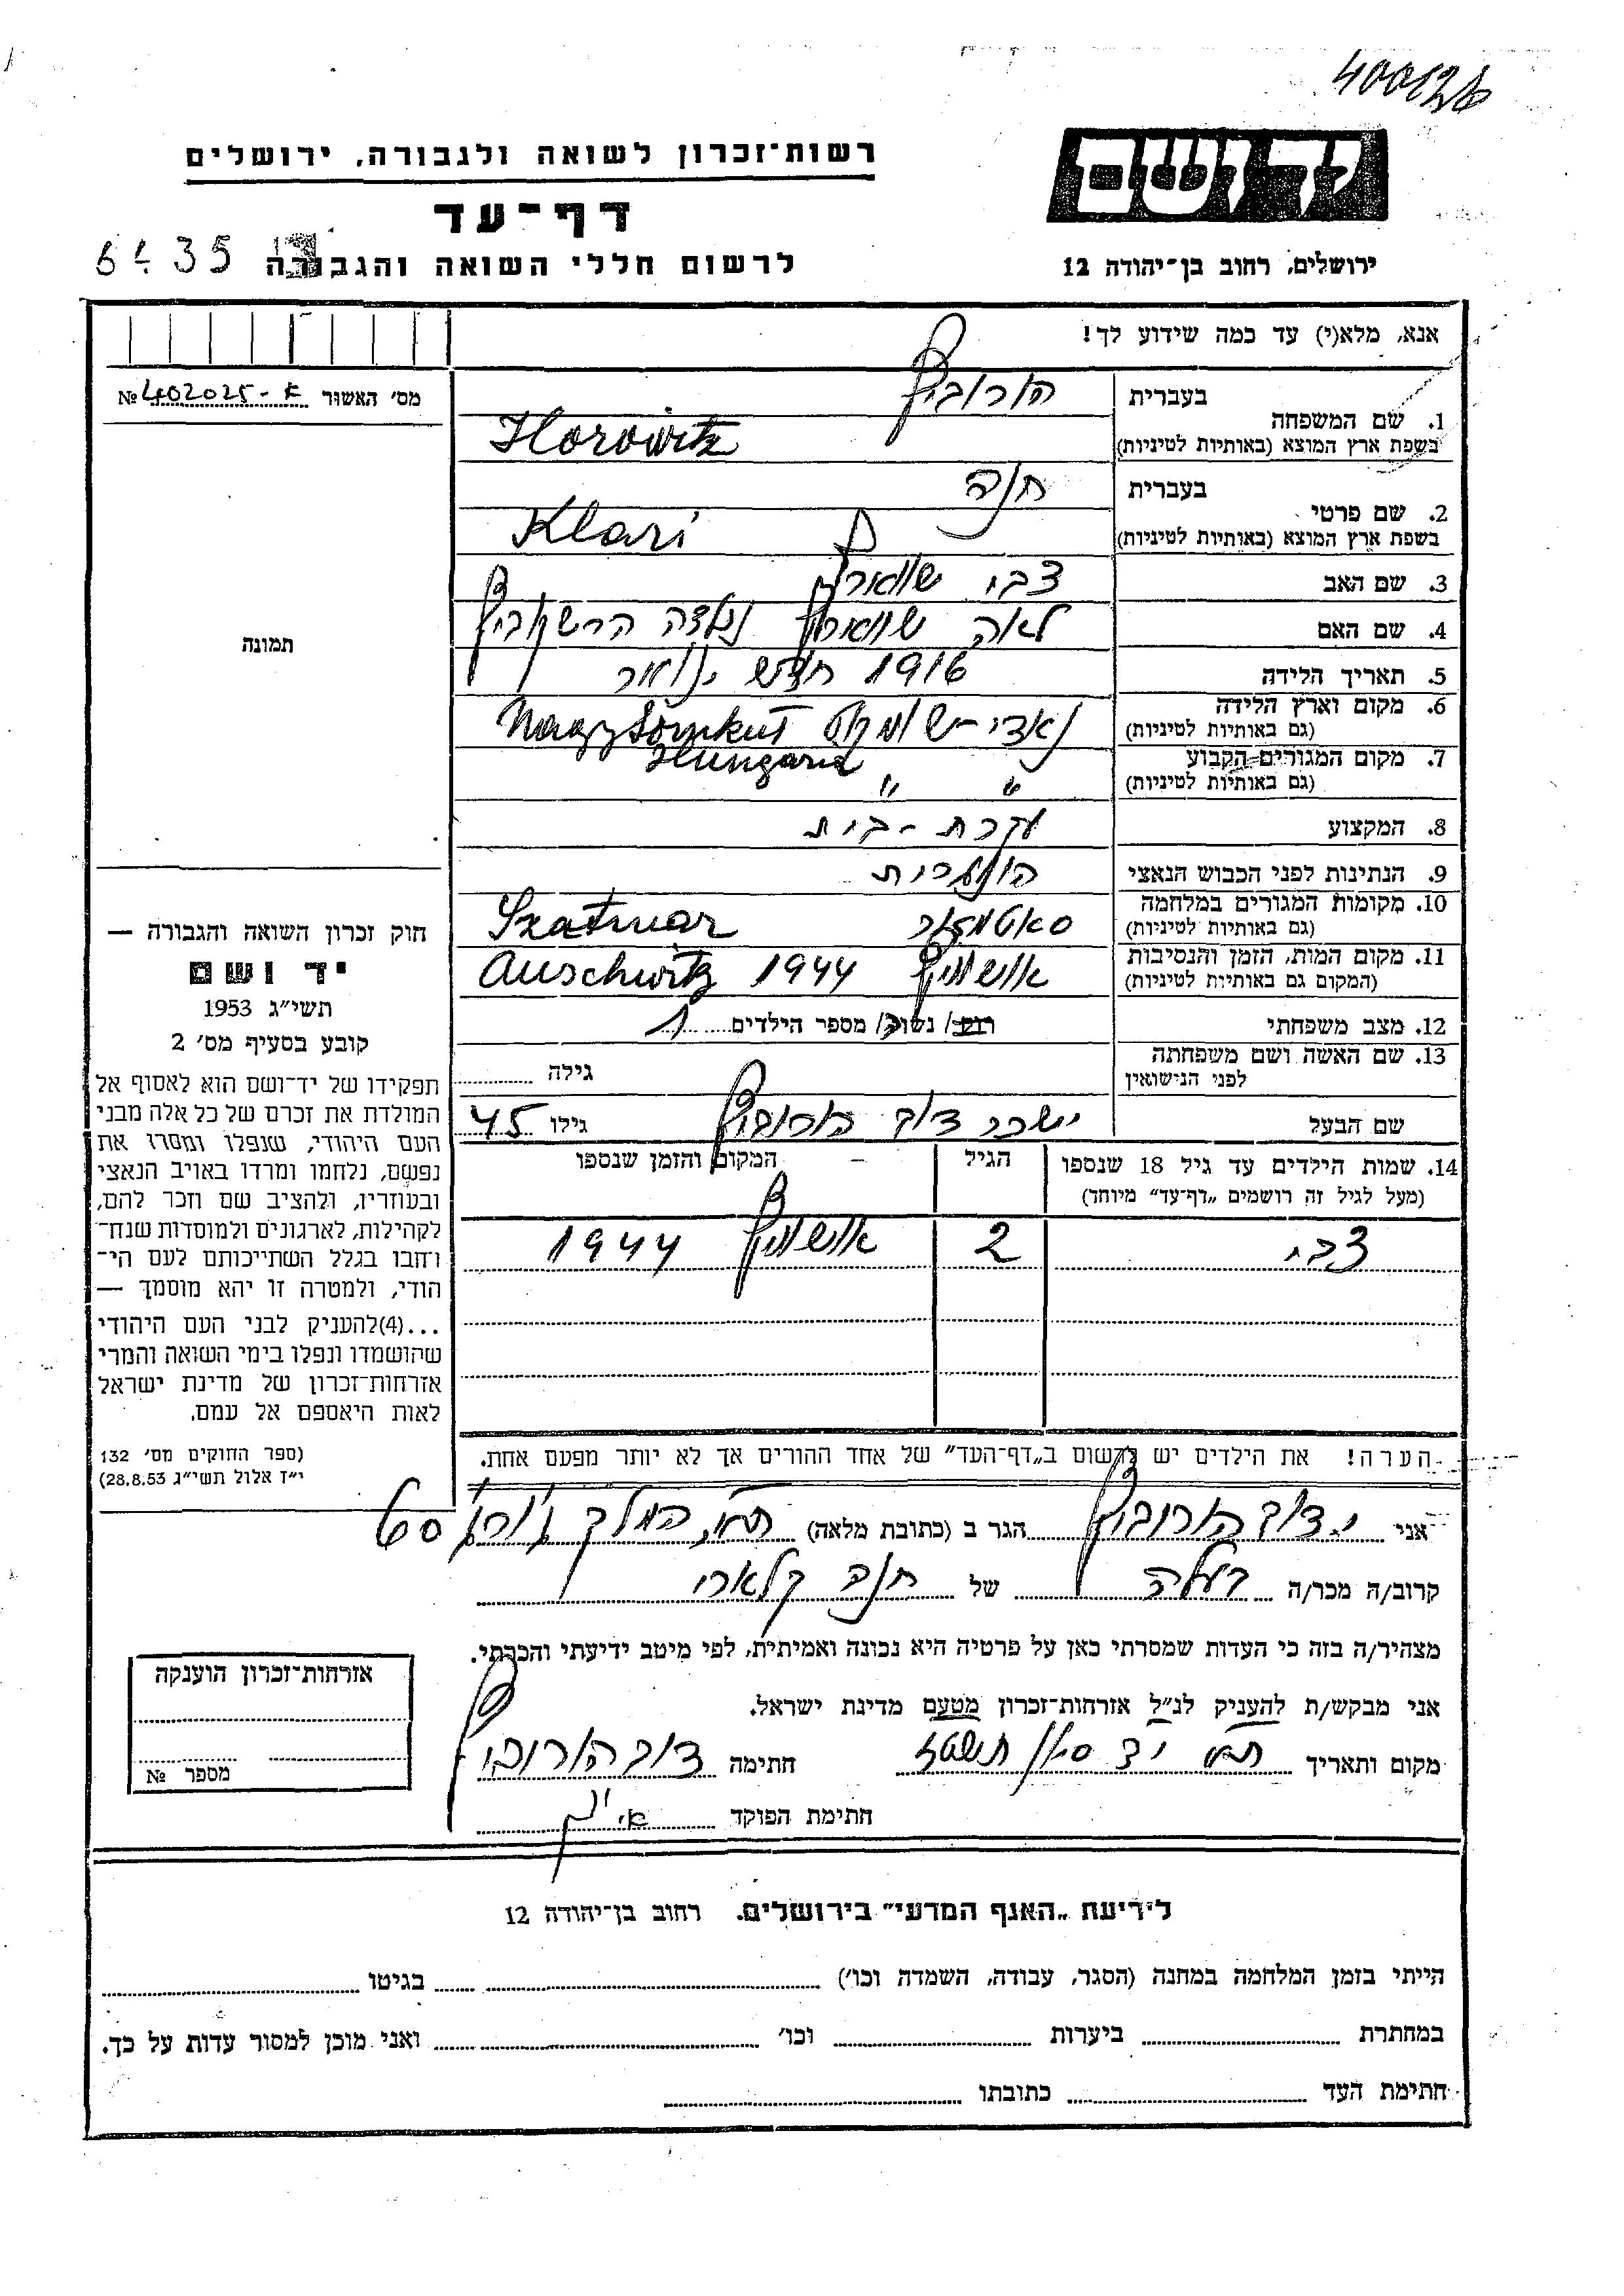 רשות־זכרון לשואה ולגבורה, ירושלים
יד ושם
דף־עד
לרשום חללי השואה והגבורה
ירושלים, רחוב בן־יהודה 12
אנא, מלא(י) עד כמה שידוע לך!
מס' האשור №
1. שם המשפחה בעברית הורוביץ
בשפת ארץ המוצא (באותיות לטיניות) Horowitz
2. שם פרטי בעברית חנה
בשפת ארץ המוצא (באותיות לטיניות) Klari
3. שם האב צבי שווארץ
4. שם האם לאה שווארץ נולדה הרשקוביץ
5. תאריך הלידה 1916 חודש ינואר
6. מקום וארץ הלידה נאדי-שומקוט Nagysomkut
(גם באותיות לטיניות) Hungaria
7. מקום המגורים הקבוע " "
(גם באותיות לטיניות)
8. המקצוע עקרת-בית
9. הנתינות לפני הכבוש הנאצי הונגרית
10. מקומות המגורים במלחמה סאטמאר Szatmar
(גם באותיות לטיניות)
11. מקום המות, הזמן והנסיבות אושוויץ 1944 Auschwitz
(המקום גם באותיות לטיניות)
12. מצב משפחתי רוק/ נשוי/ מספר הילדים 1
13. שם האשה ושם משפחתה גילה
לפני הנישואין
שם הבעל יששכר דוב הורוביץ גילו 45
14. שמות הילדים עד גיל 18 שנספו הגיל המקום והזמן שנספו
(מעל לגיל זה רושמים „דף־עד” מיוחד)
צבי 2 אושוויץ 1944
הערה! את הילדים יש לרשום ב„דף־העד” של אחד ההורים אך לא יותר מפעם אחת.
תמונה
חוק זכרון השואה והגבורה —
יד ושם
תשי"ג 1953
קובע בסעיף מס' 2
תפקידו של יד־ושם הוא לאסוף אל
המולדת את זכרם של כל אלה מבני
העם היהודי, שנפלו ומסרו את
נפשם, נלחמו ומרדו באויב הנאצי
ובעוזריו, ולהציב שם וזכר להם,
לקהילות, לארגונים ולמוסדות שנח־
רובו בגלל השתייכותם לעם הי־
הודי, ולמטרה זו יהא מוסמך —
...(4)להעניק לבני העם היהודי
שהושמדו ונפלו בימי השואה והמרי
אזרחות־זכרון של מדינת ישראל
לאות היאספם אל עמם.
(ספר החוקים מס' 132
י"ז אלול תשי"ג 28.8.53)
אני י. דוב הורוביץ הגר ב (כתובת מלאה) ת"א, המלך ג'ורג' 60
קרוב/ה מכר/ה בעלה של חנה קלארי
מצהיר/ה בזה כי העדות שמסרתי כאן על פרטיה היא נכונה ואמיתית, לפי מיטב ידיעתי והכרתי.
אני מבקש/ת להעניק לנ"ל אזרחות־זכרון מטעם מדינת ישראל.
מקום ותאריך ת"א חתימה דוב הורוביץ
חתימת הפוקד
אזרחות־זכרון הוענקה
מספר №
לידיעת „האגף המדעי” בירושלים. רחוב בן־יהודה 12
הייתי בזמן המלחמה במחנה (הסגר, עבודה, השמדה וכו') בגיטו
במחתרת ביערות וכו' ואני מוכן למסור עדות על כך.
חתימת העד כתובתו